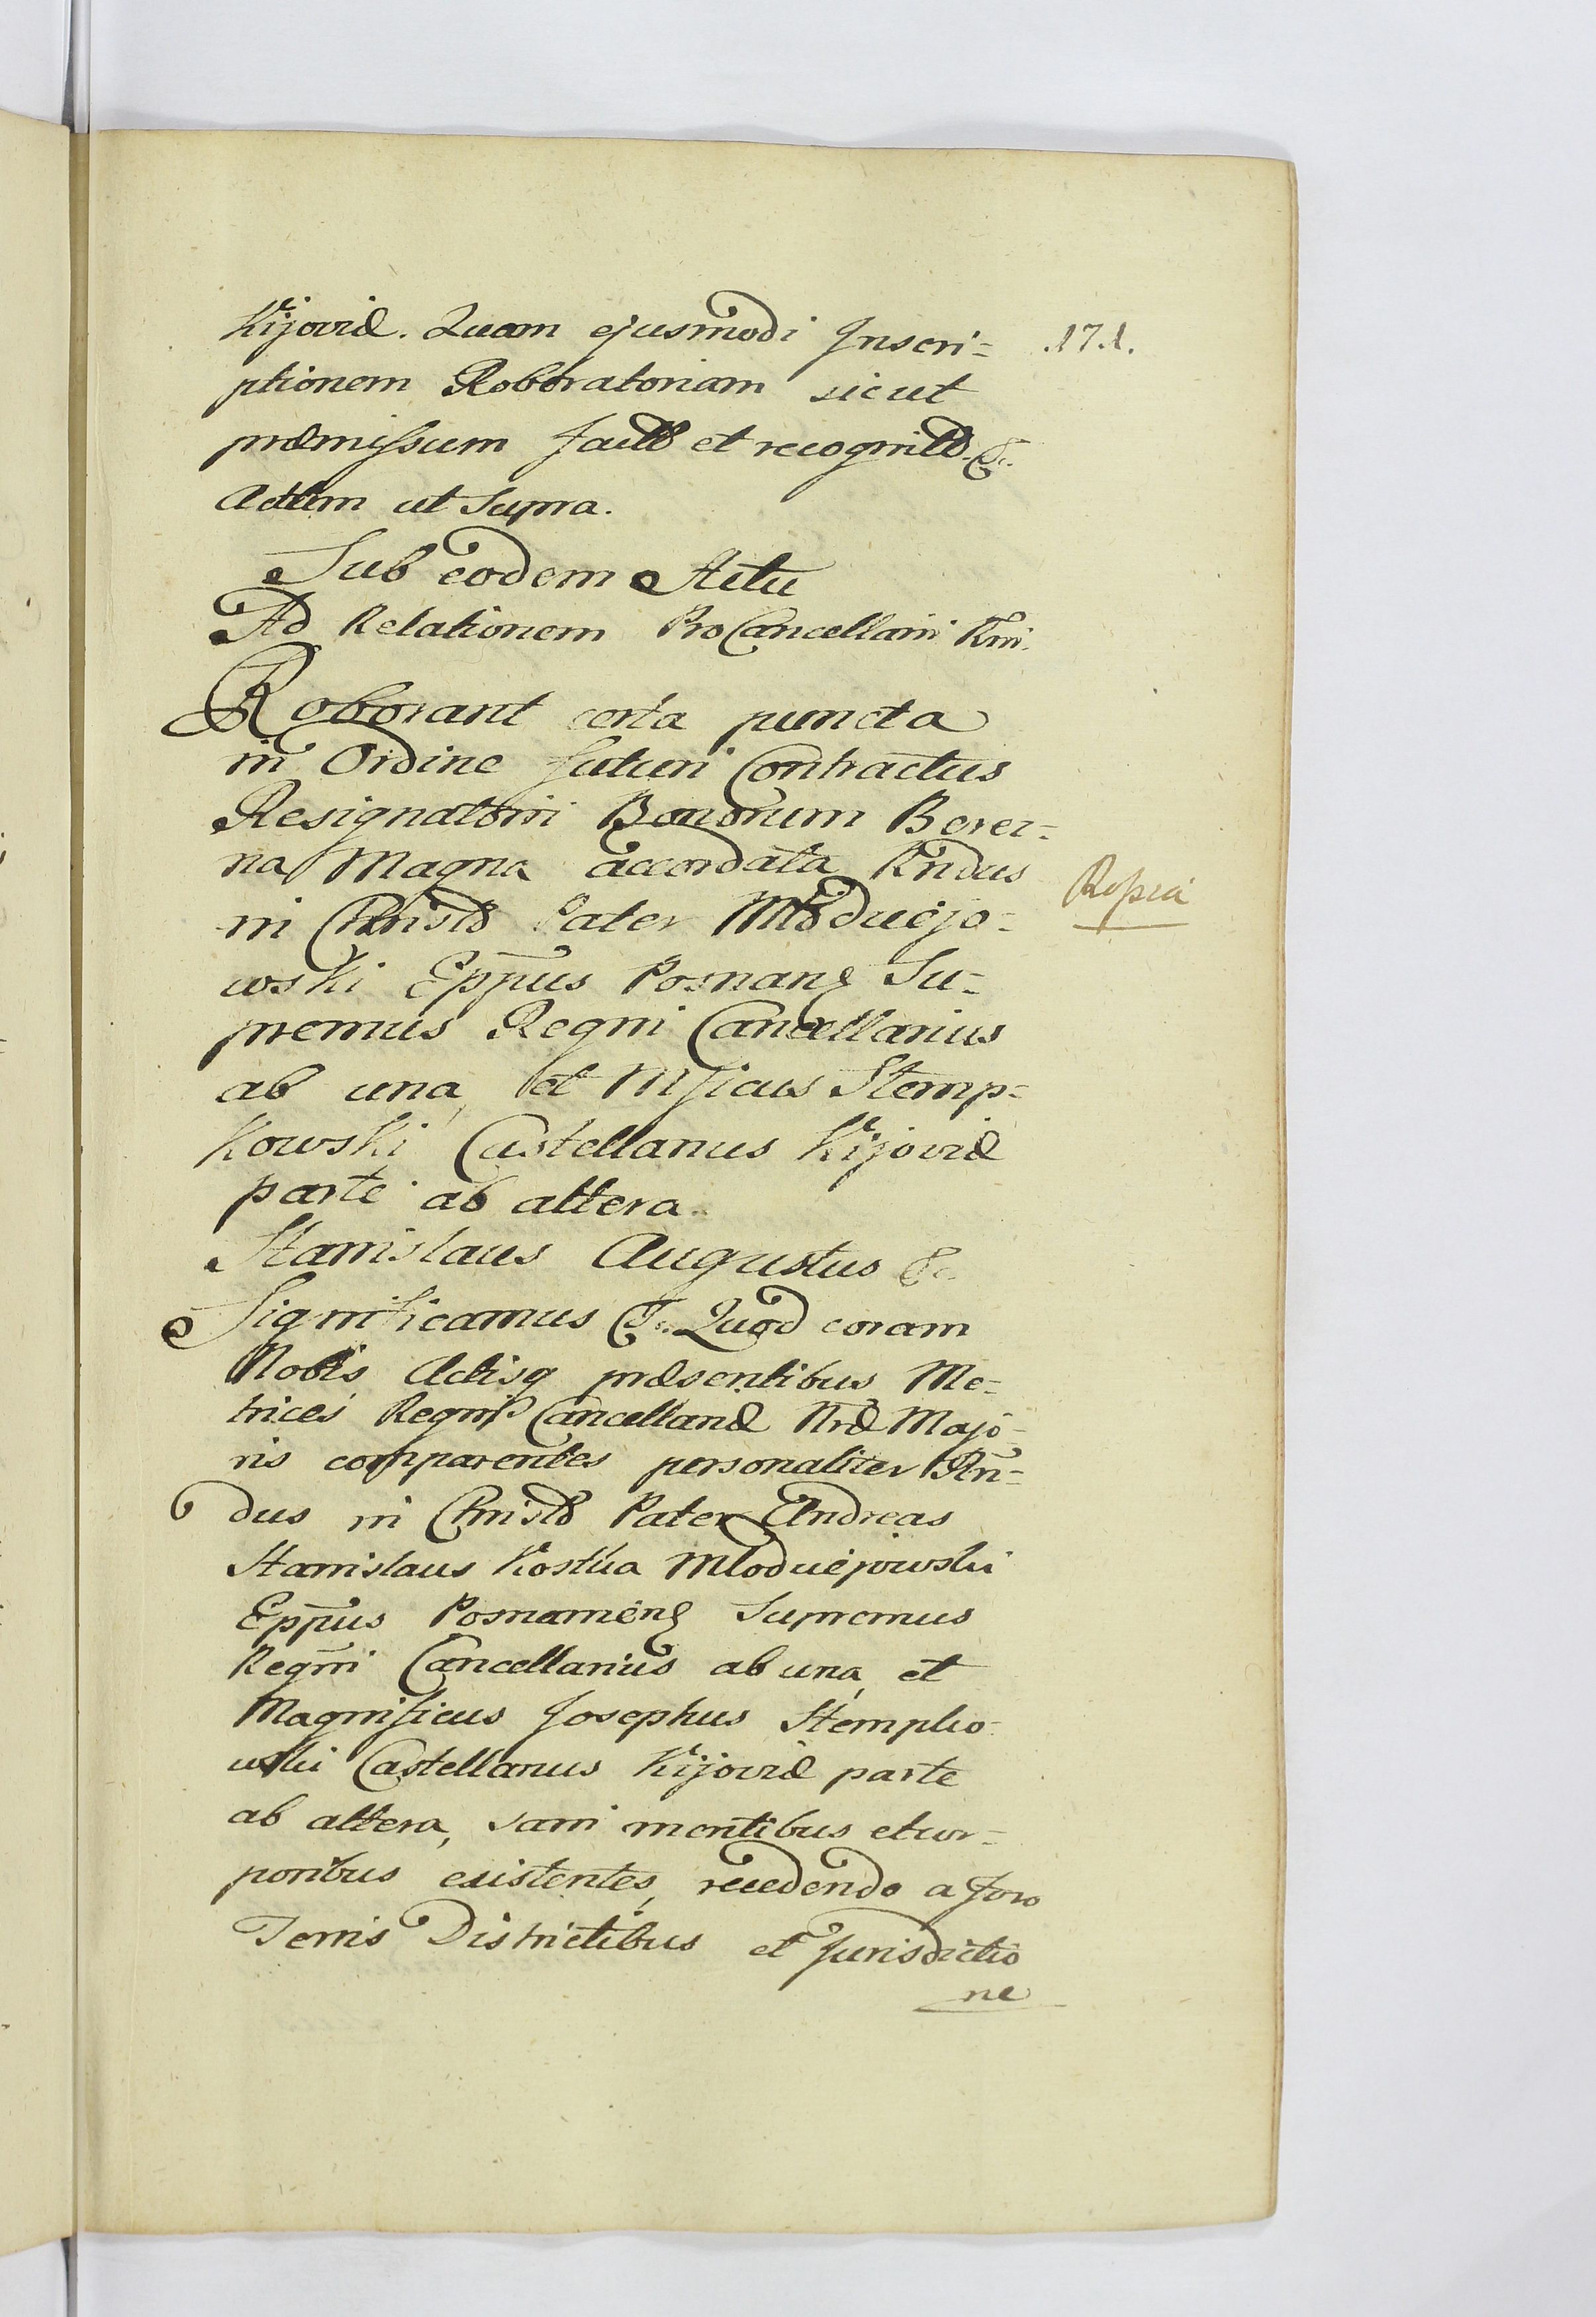 Kijoviæ. Quam ejusmodi Inscri=
.171.
ptionem Roboratoriam sicut
præmissum facto et recognito. &c.
Actum ut supra.
Sub eodem Actu
Ad Relationem ProCancellarii Rni.
Roborant certa puncta
in Ordine futuri Contractus
Resignatorii Bonorum Berez=
na Magna accordata Rndus
Rossia
in Christo Pater Młodziejo=
wski Eppus Posnan Su=
premus Regni Cancellarius
ab una, et Mficus Stemp=
kowski Castellanus Kijoviæ
parte ab altera.
Stanislaus Augustus &c.
Significamus &c. Quod coram
Nobis Actisq præsentibus Me=
trices Regni Cancellariæ Nræ Majo=
ris comparentes personaliter Rn=
dus in Christo Pater Andreas
Stanislaus Kostka Młodziejowski
Eppus Posnanien Supremus
Regni Cancellarius ab una, et
Magnificus Josephus Stempko=
wski Castellanus Kijoviæ parte
ab altera, sani mentibus et cor=
poribus existentes, recedendo a foro
Terris Districtibus et Jurisdictio
ne